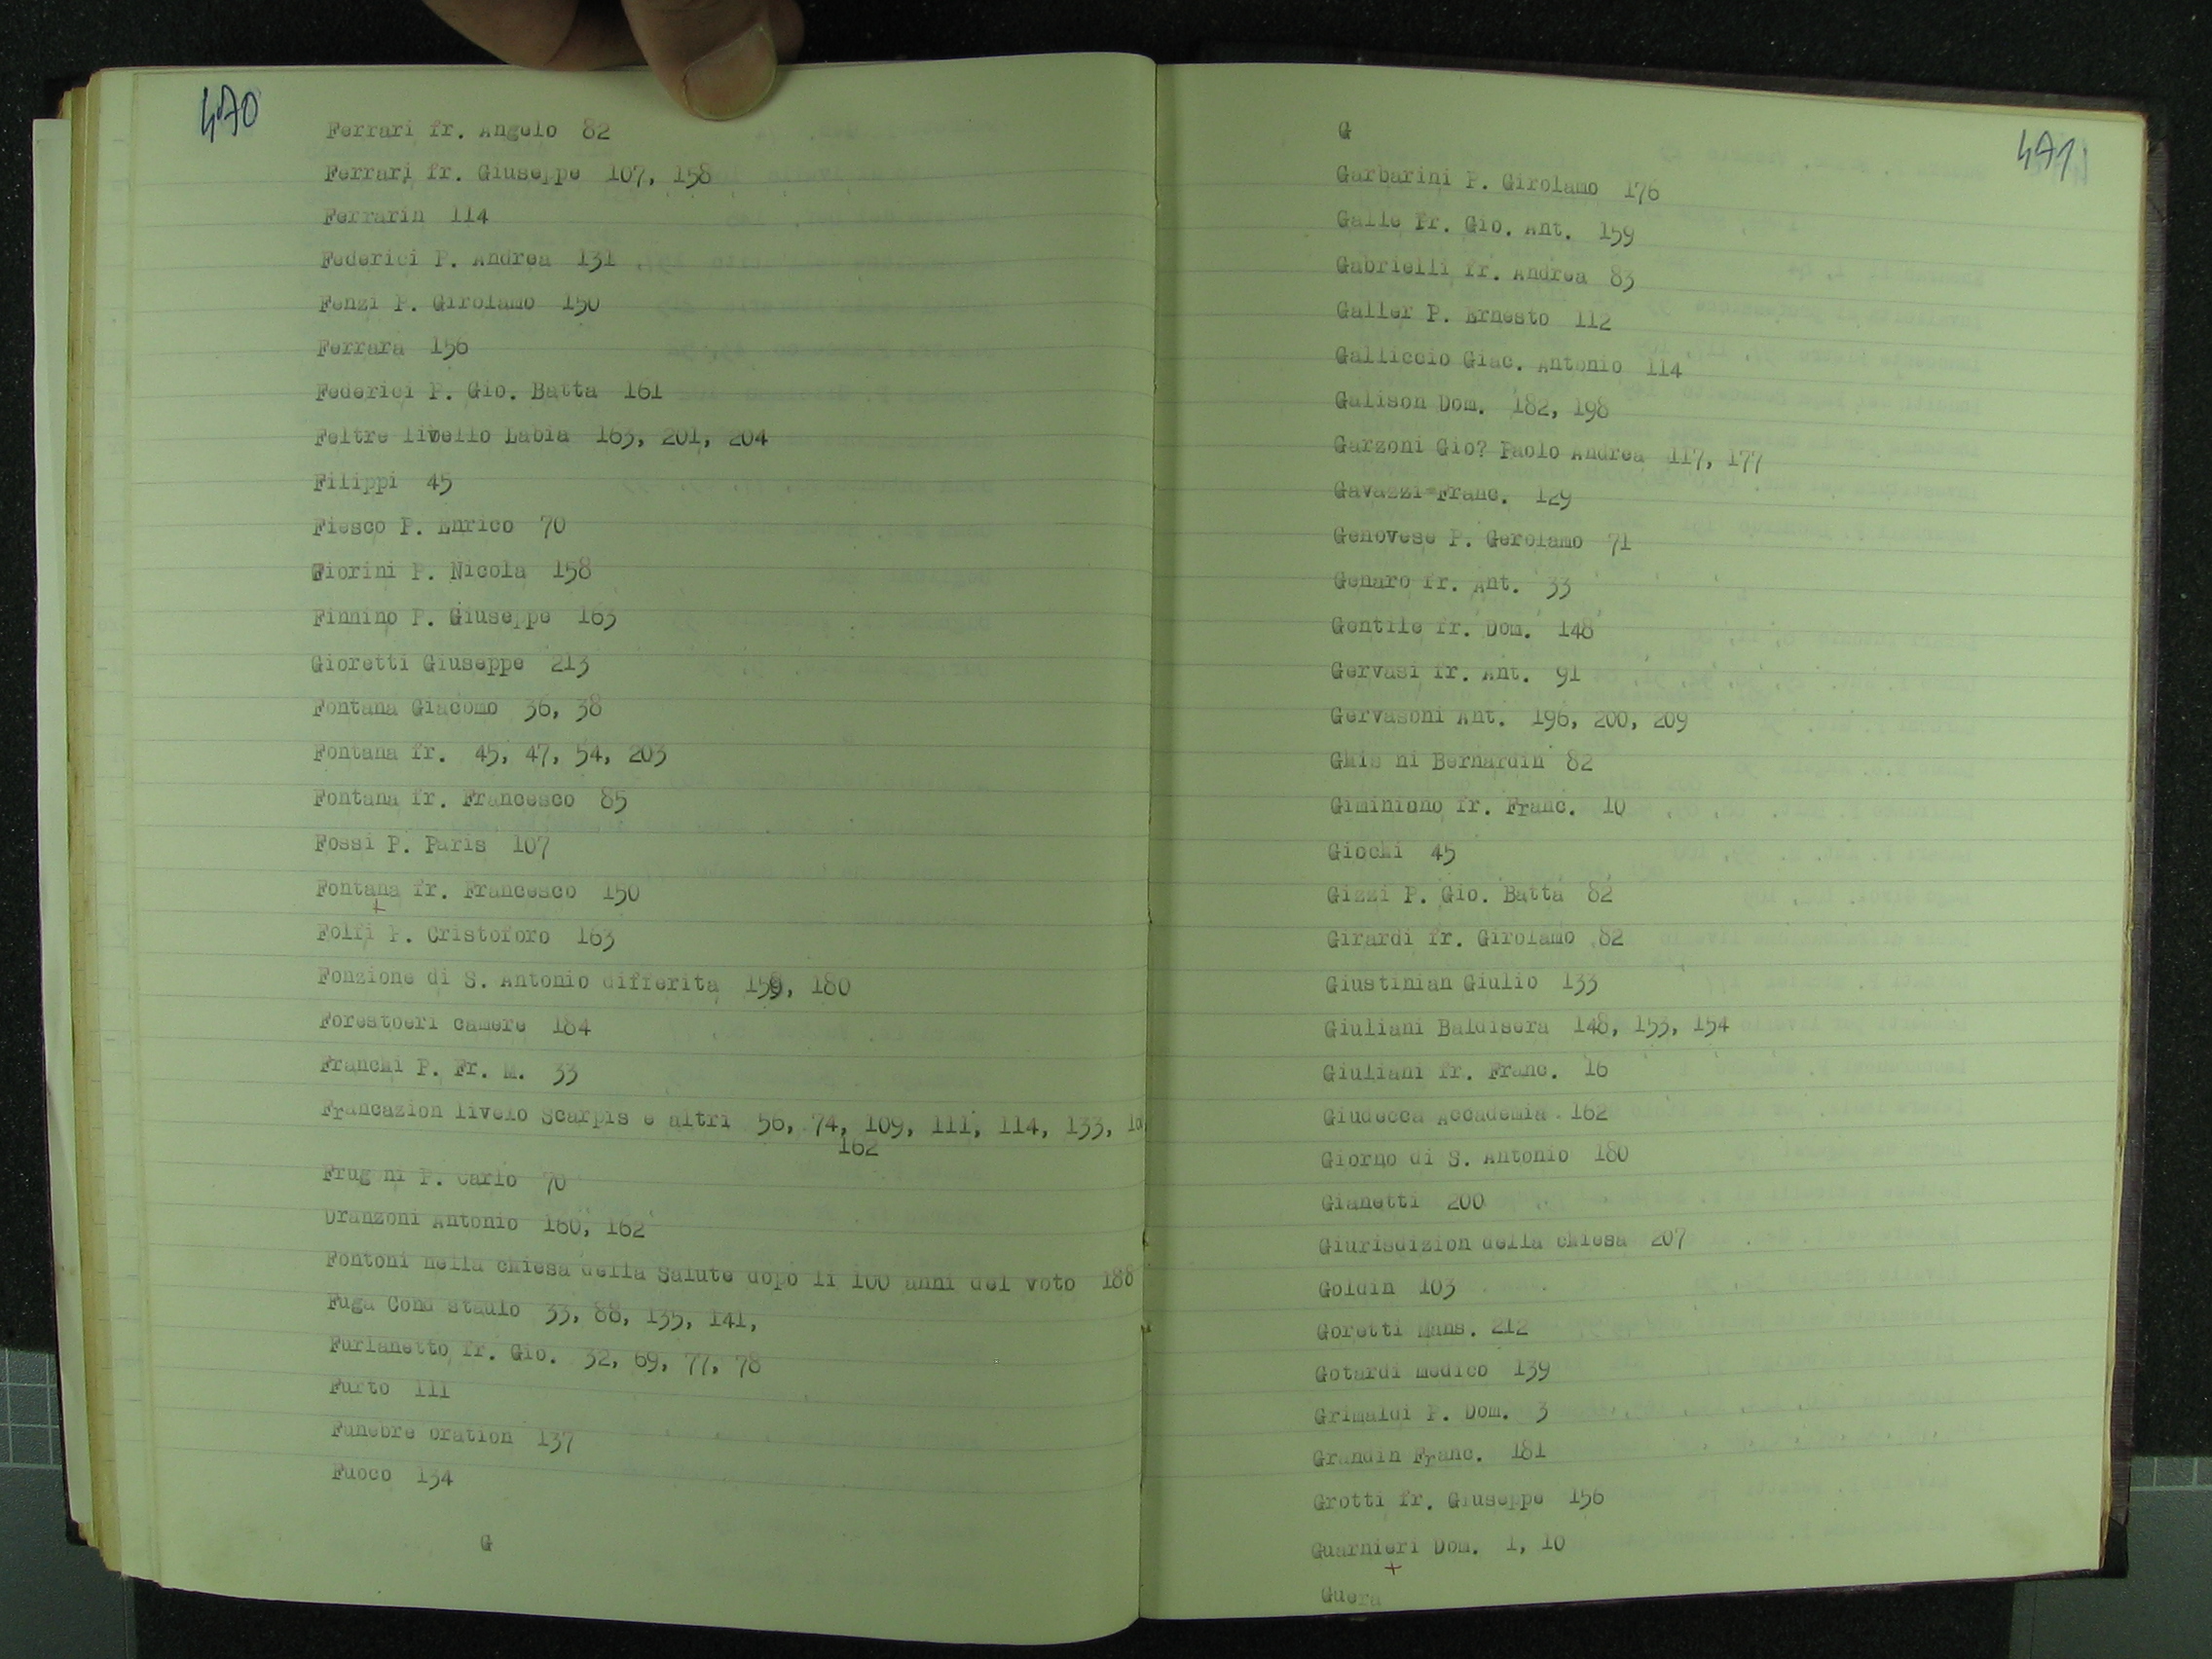 470
Ferrari fr. Angelo 82
Ferrari fr. Giuseppe 107, 158
Ferrarin 114
Federici P. Andrea 131
Fenzi P. Girolamo 150
Ferrara 156
Federici P. Gio. Batta 161
Feltre livello Labia 163, 201, 204
Filippi 45
Fiesco P. Enrico 70
Fiorini P. Nicola 158
Finnino P. Giuseppe 163
Gioretti Giuseppe 213
Fontana Giacomo 36, 38
Fontana fr. 45, 47, 54, 203
Fontana fr. Francesco 85
Fossi P. Paris 107
Fontana fr. Francesco 150
Folfi P. Cristoforo 163
Fonzione di S. Antonio differita 159, 180
Forestoeri camere 184
Franchi P. Fr. M. 33
Francazion livelo Scarpis e altri 56, 74, 109, 111, 114, 133,
162
Frug ni P. Carlo 70
Dranzoni Antonio 160, 162
Fontoni nella chiesa della Salute dopo li 100 anni del voto 188
Fuga Cond staulo 33, 88, 135, 141,
Furlanetto fr. Gio. 32, 69, 77, 78
Furto 111
Funebre oration 137
Fuoco 134
G
471
G
Garbarini P. Girolamo 176
Galle fr. Gio. Ant. 159
Gabrielli fr. Andrea 83
Galler P. Ernesto 112
Galliccio Giac. Antonio 114
Galison Dom. 182, 198
Garzoni Gio? Paolo Andrea 117, 177
Gavazzi=Franc. 129
Genovese P. Gerolamo 71
Genaro fr. Ant. 33
Gentile fr. Dom. 148
Gervasi fr. Ant. 91
Gervasoni Ant. 196, 200, 209
Ghis ni Bernardin 82
Giminiono fr. Franc. 10
Giochi 45
Gizzi P. Gio. Batta 82
Girardi fr. Girolamo 82
Giustinian Giulio 133
Giuliani Baldisera 148, 153, 154
Giuliani fr. Franc. 16
Giudecca Accademia 162
Giorno di S. Antonio 180
Gianetti 200
Giurisdizion della chiesa 207
Goldin 103
Goretti Mans. 212
Gotardi medico 139
Grimaldi P. Dom. 3
Grandin Franc. 181
Grotti fr. Giuseppe 156
Guarnieri Dom. 1, 10
Guera